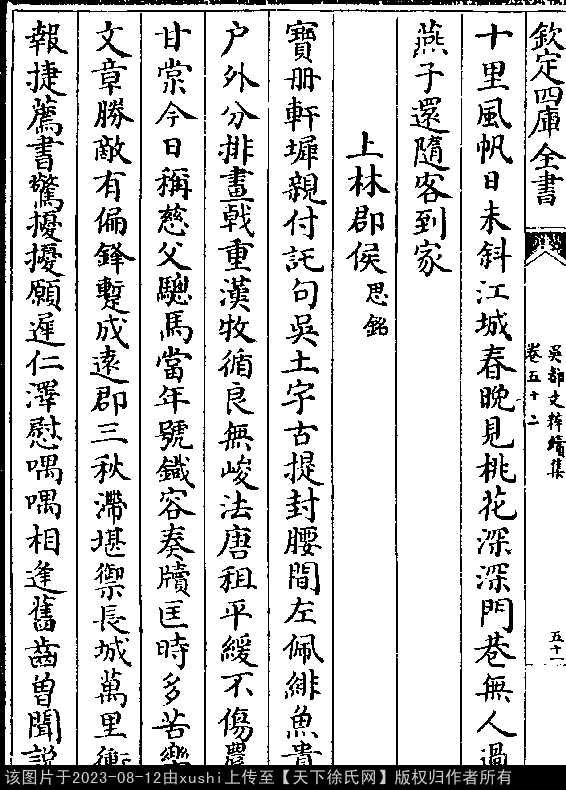 欽定四庫全書
吳都文粹續集
卷五十二
五十一
十里風帆日未斜江城春晩見桃花深深門巷無人過
燕子還隨客到家
上林郡侯思銘
寶册軒墀親付託句吳土字古提封腰間左佩緋魚貴
户外分排畫㦸重漢牧循良無峻法唐租平緩不傷農
甘棠今日稱慈父驄馬當年號鐡容奏牘匡時多苦
文章勝敵有偏鋒蹔成逺郡三秋滯堪禦長城萬里衝
報捷薦書驚擾擾願遲仁澤慰喁喁相逢舊齒曽聞説
该图片于2023-08-12由xushi上传至【天下徐氏网】版权归作者所有